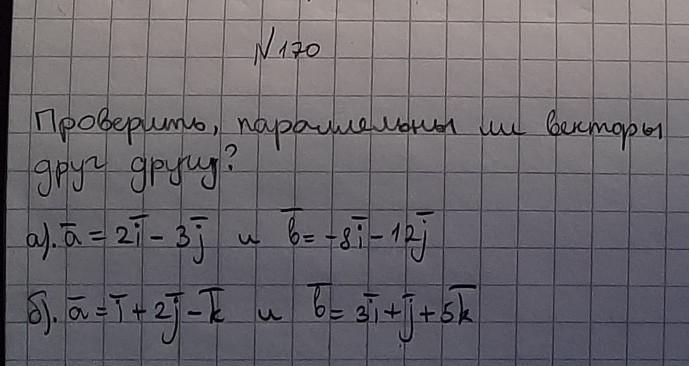 №170
Проверить, параллельны ли векторы
друг другу?
а). a̅ = 2i̅ - 3j̅ и b̅ = -8i̅ - 12j̅
б). a̅ = i̅ + 2j̅ - k̅ и b̅ = 3i̅ + j̅ + 5k̅